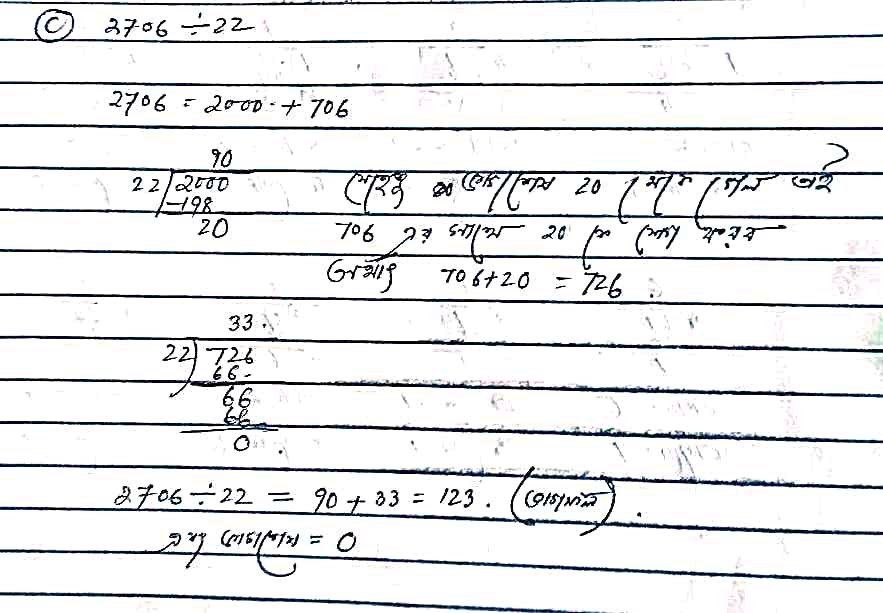 (C) 2706 ÷ 22
2706 = 2000 + 706
90
22 2000
-198
20
যেহেতু ভাগশেষ 20 থেকে গেল তাই
706 এর সাথে 20 কে যোগ করব
অর্থাৎ 706+20 = 726.
33.
22 726
66
66
66
0.
2706 ÷ 22 = 90 + 33 = 123. (ভাগফল).
এবং ভাগশেষ = 0